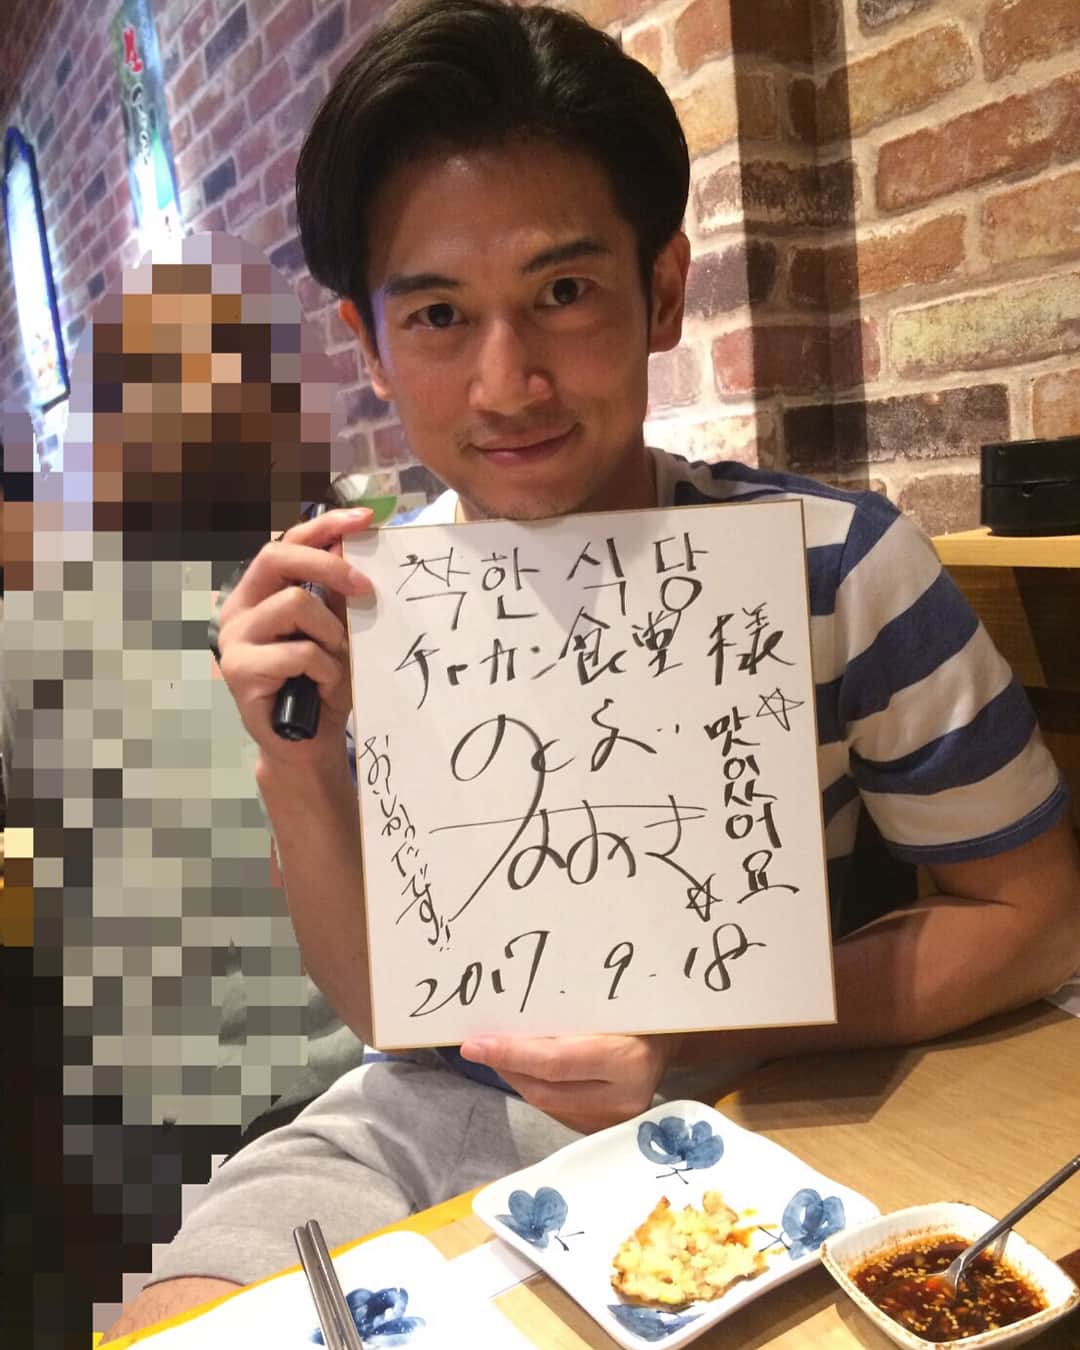 착한 식당
チャカン食堂 様
のとよ
なおき
맛이있어요
おいしかったです!!
2017. 9. 18